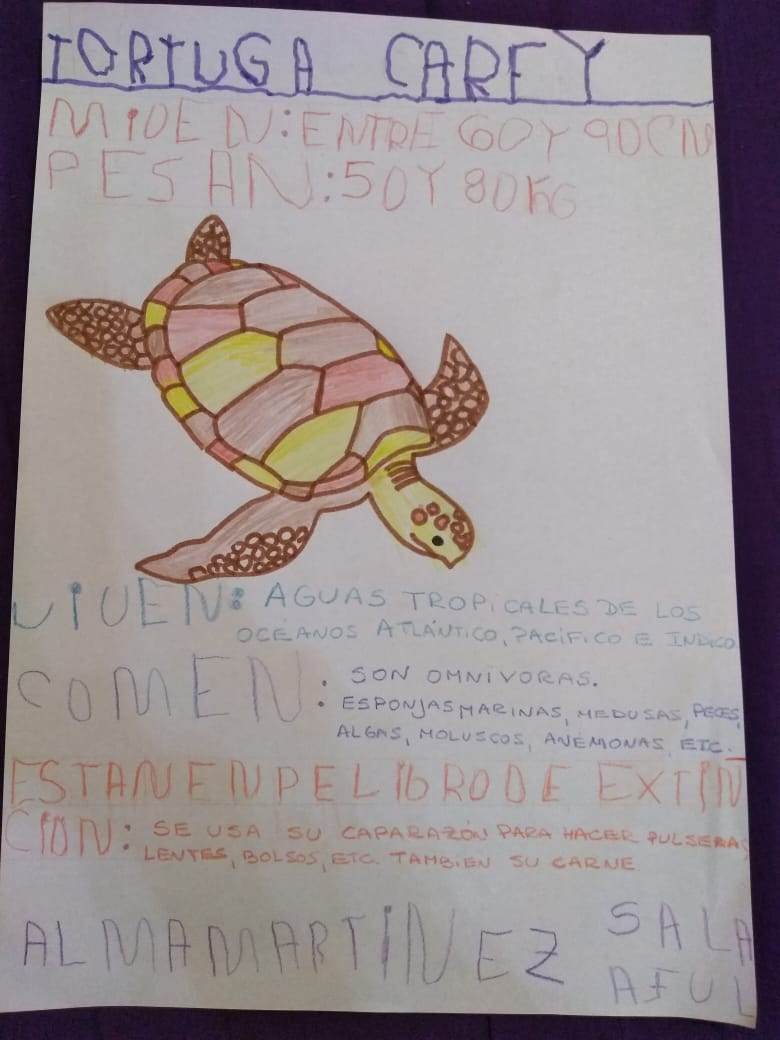 TORTUGA CAREY
MIDEN: ENTRE 60 Y 90 CM
PESAN: 50 Y 80 KG
VIVEN: AGUAS TROPICALES DE LOS
OCÉANOS ATLÁNTICO, PACÍFICO E INDICO
COMEN: SON OMNIVORAS.
ESPONJAS MARINAS, MEDUSAS, PECES,
ALGAS, MOLUSCOS, ANÉMONAS, ETC.
ESTAN EN PELIGRO DE EXTIN
CION: SE USA SU CAPARAZÓN PARA HACER PULSERAS
LENTES, BOLSOS, ETC. TAMBIEN SU CARNE
ALMA MARTINEZ SALA
AFUL